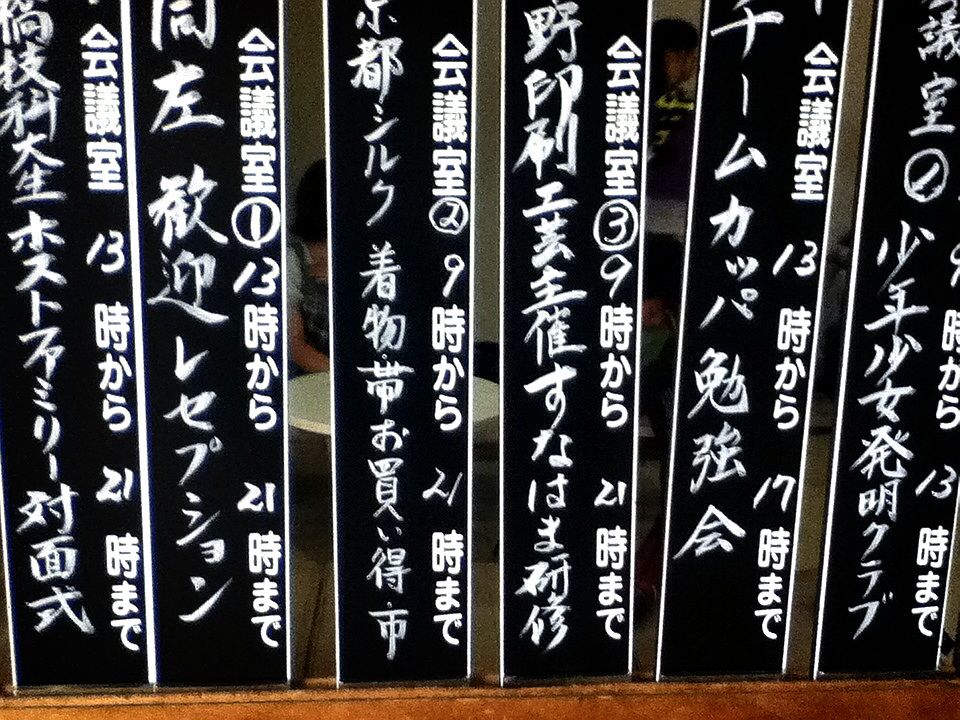 会議室② 少年少女発明クラブ
9時から 13時まで
会議室 13時から 17時まで
チームカッパ 勉強会
会議室③ 9時から 21時まで
野印刷工芸主催すなはま研修
会議室② 9時から 21時まで
京都シルク 着物・帯お買い得市
会議室① 13時から 21時まで
同左 歓迎レセプション
会議室 13時から 21時まで
橋技科大生ホストファミリー対面式